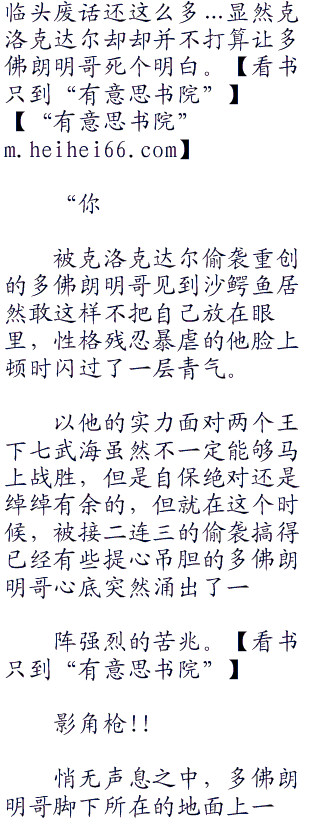 临头废话还这么多…显然克
洛克达尔却却并不打算让多
佛朗明哥死个明白。【看书
只到“有意思书院”】
【“有意思书院”
m.heihei66.com】
“你
被克洛克达尔偷袭重创
的多佛朗明哥见到沙鳄鱼居
然敢这样不把自己放在眼
里，性格残忍暴虐的他脸上
顿时闪过了一层青气。
以他的实力面对两个王
下七武海虽然不一定能够马
上战胜，但是自保绝对还是
绰绰有余的，但就在这个时
候，被接二连三的偷袭搞得
已经有些提心吊胆的多佛朗
明哥心底突然涌出了一
阵强烈的苦兆。【看书
只到“有意思书院”】
影角枪!!
悄无声息之中，多佛朗
明哥脚下所在的地面上一